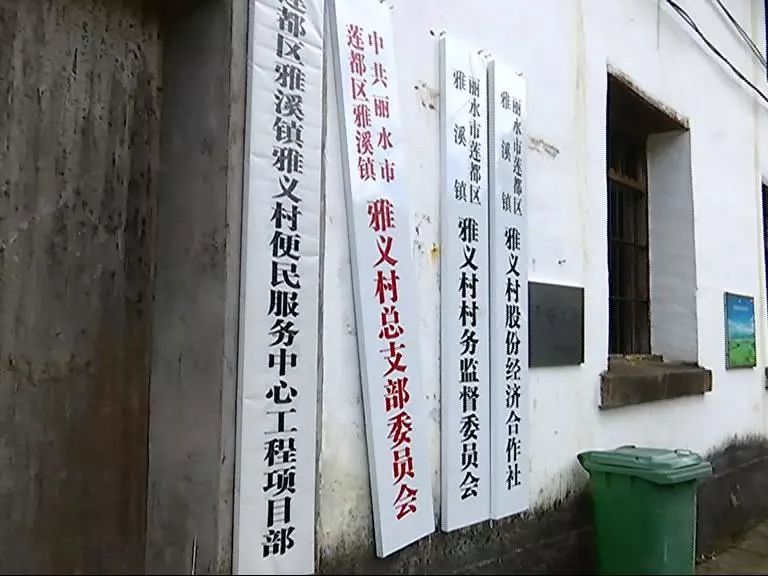 莲都区雅溪镇雅义村便民服务中心工程项目部
中共丽水市
莲都区雅溪镇
雅义村总支部委员会
丽水市莲都区
雅溪镇
雅义村村务监督委员会
丽水市莲都区
雅溪镇
雅义村股份经济合作社